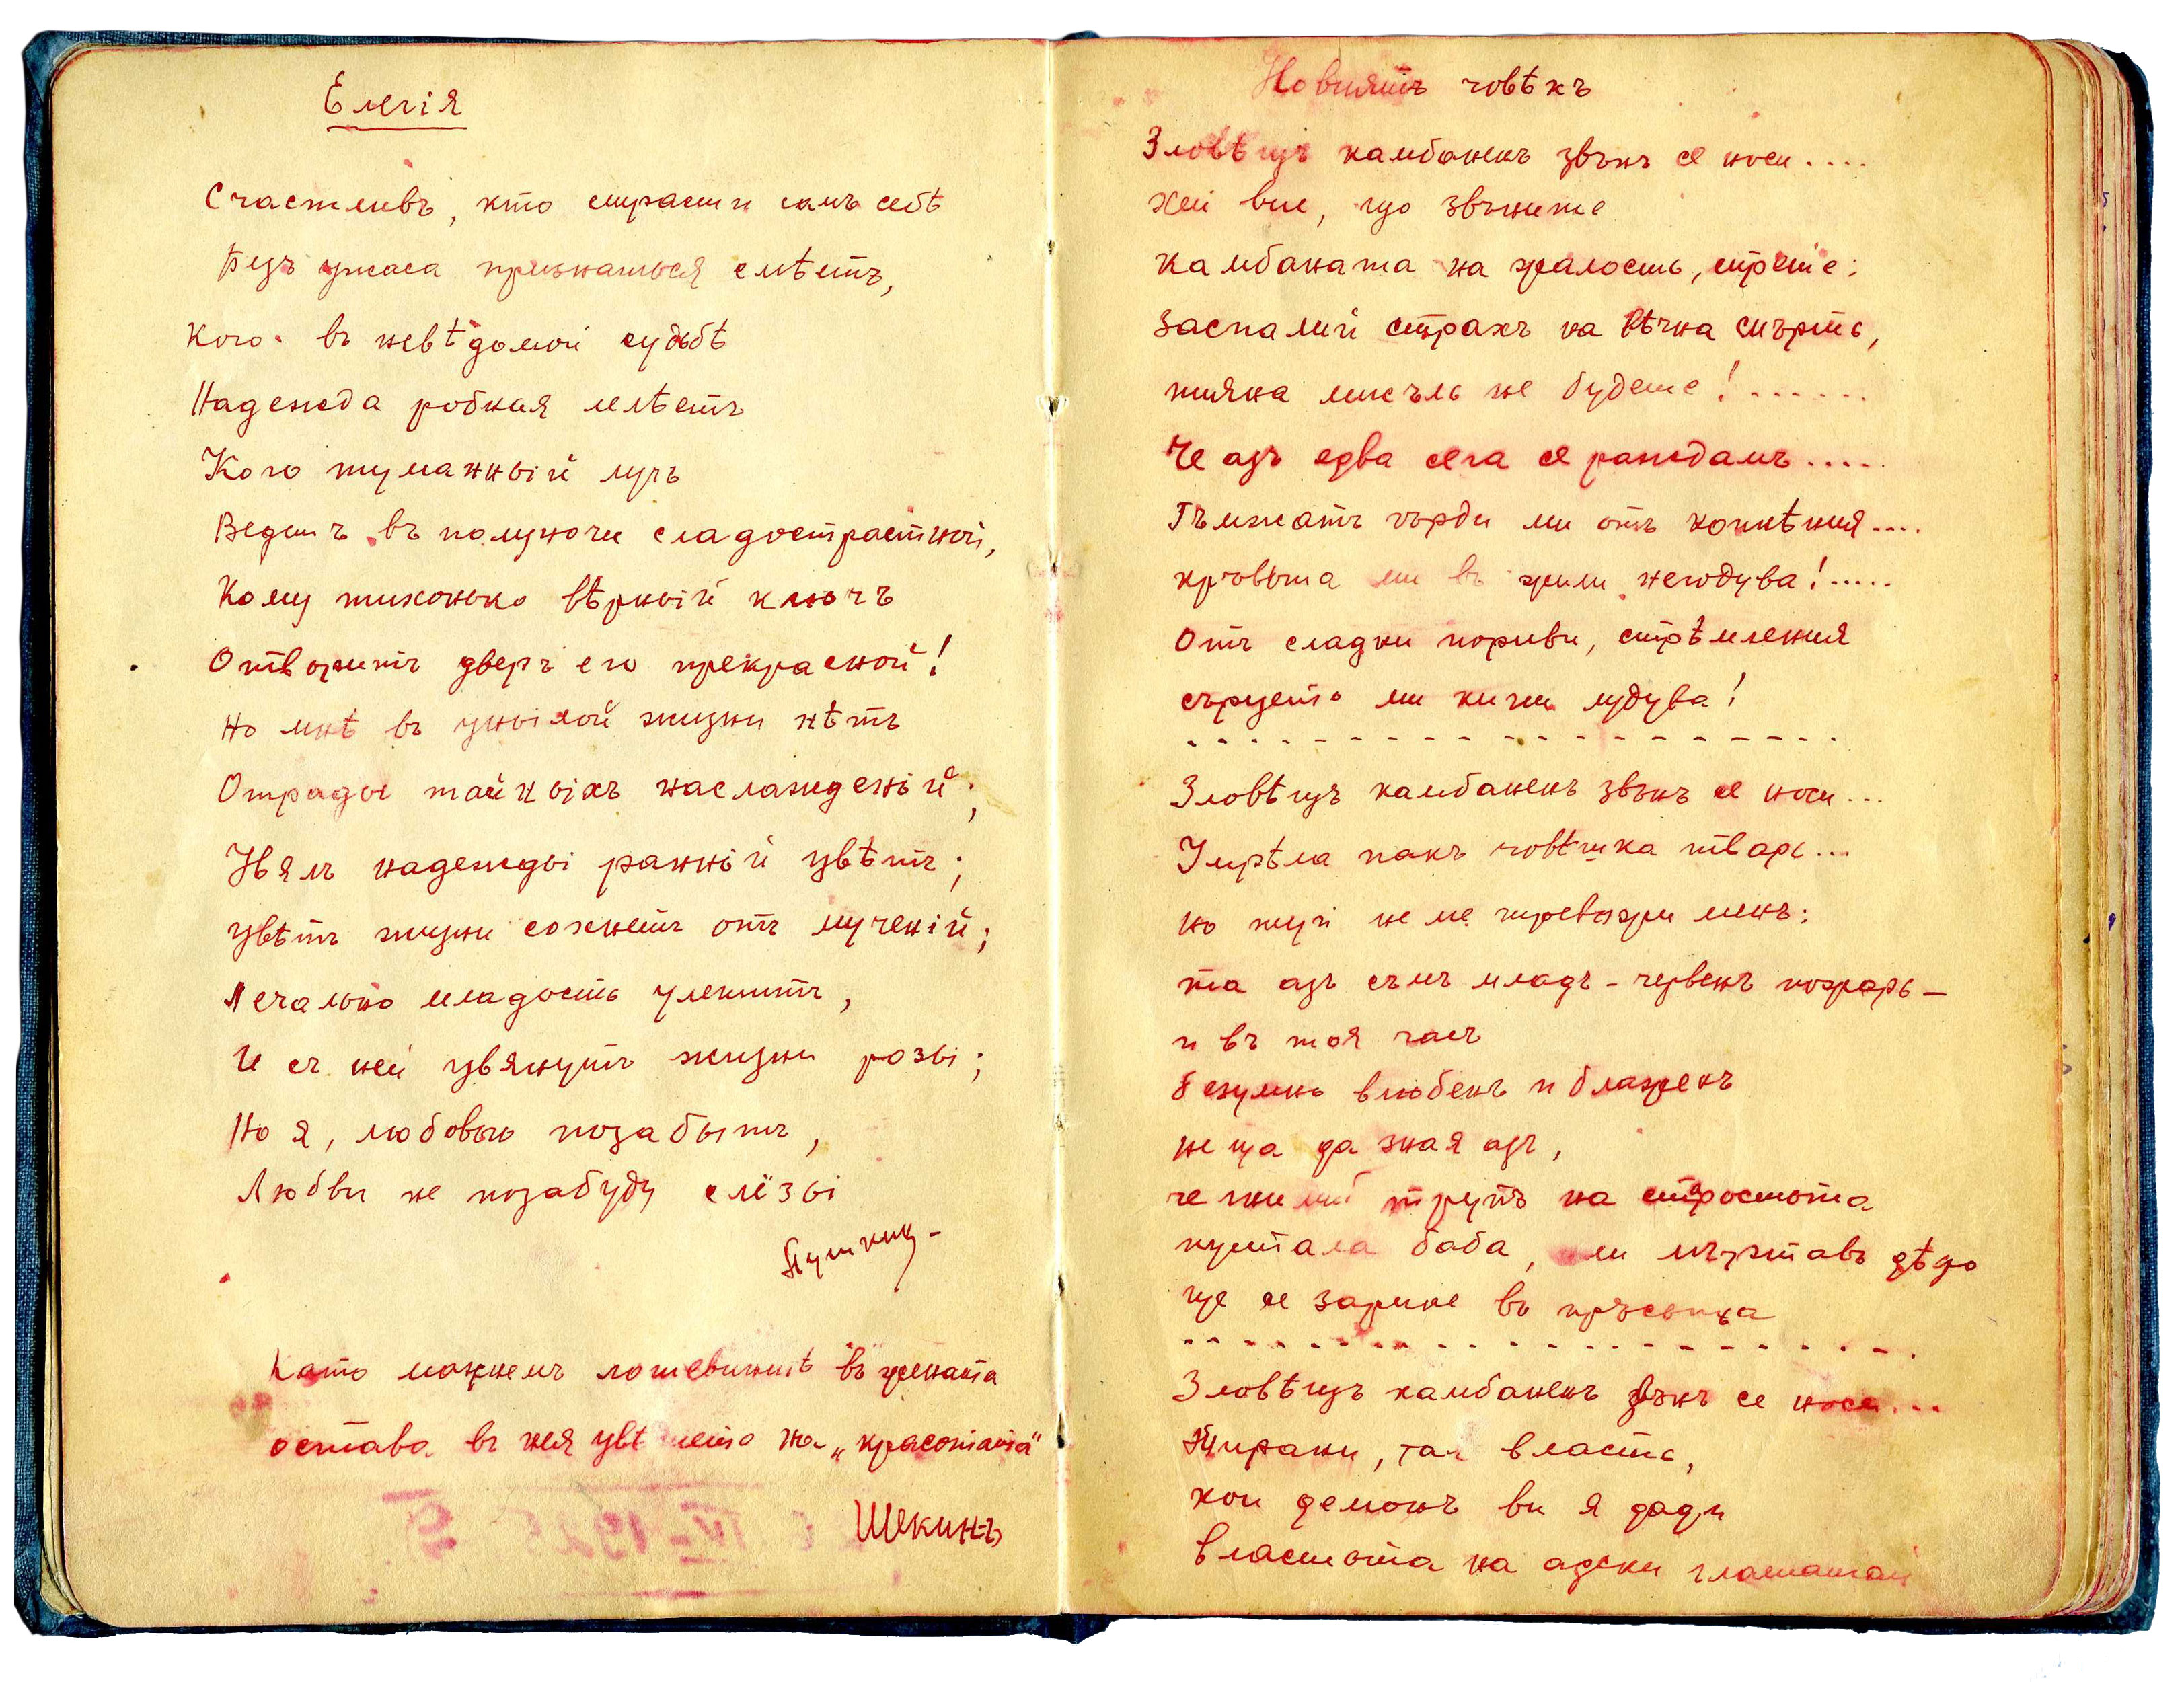 Елегія
Счастливъ, кто страсти самъ себѣ
Безъ ужаса признаться смѣетъ,
Кого въ невѣдомой судьбѣ
Надежда робкая лелѣетъ
Кого туманный лучъ
Ведетъ въ полуночи сладострастной,
Кому тихонько вѣрный ключъ
Отворитъ дверъ его прекрасной!
Но мнѣ въ унылой жизни нѣтъ
Отрады тайныхъ наслажденій;
Увялъ надежды ранній цвѣтъ;
Цвѣтъ жизни сохнетъ отъ мученій;
Печально младость улетитъ,
И съ ней увянутъ жизни розы;
Но я, любовью позабытъ,
Любви не позабуду слёзы
Пушкин
Като махнемъ лошевинитѣ въ жената
остава въ нея цвѣтето на „красотата"
Шекинъ
Новиятъ човѣкъ
Зловѣщъ камбаненъ звънъ се носи....
Хей вие, що звъните
камбаната на жалость, спрете:
Заспалий страхъ на вѣчна смърть,
пияна мисъль не будете!......
Че азъ едва сега се раждамъ.....
Гъмжатъ гърди ми отъ копнѣния....
кръвьта ми въ жили негодува!.....
Отъ сладки пориви, стрѣмления
сърцето ми кипи лудува!
Зловѣщъ камбаненъ звънъ се носи...
Умрѣла пакъ човѣшка тварь...
но туй не ме тревожи менъ:
та азъ съмъ младъ - червенъ пожаръ -
и въ тоя часъ
безумно влюбенъ и блаженъ
не ща да зная азъ,
че гнилий трупъ на старостьта
пустала баба, или мъртавъ дѣдо
ще се зарине въ пръстьта
Зловѣщъ камбаненъ звънъ се носи...
Тирани, тая власть,
кои демонъ ви я даде
властьта на адски глашатаи